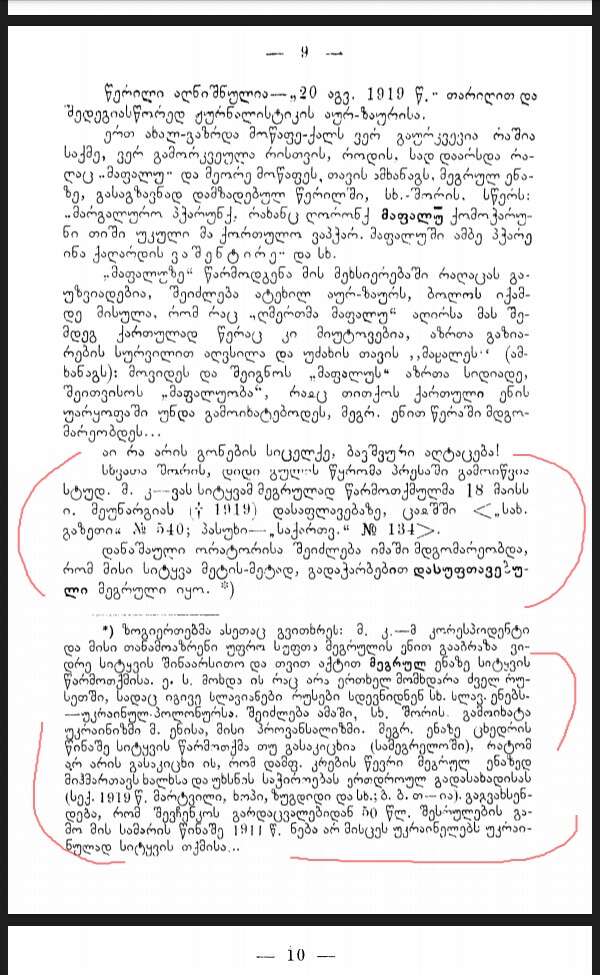 — 9 —
წერილი აღნიშნულია—„20 აგვ. 1919 წ.“ თარიღით და
შედეგიასწორედ ჟურნალისტიკის აურ-ზაურისა.
ერთ ახალ-გაზრდა მოწაფე-ქალს ვერ გაურკვევია რაშია
საქმე, ვერ გამორკვეულა რისთვის, როდის, სად დაარსდა რა-
ღაც „მაფალუ“ და მეორე მოწაფეს, თავის ამხანაგს, მეგრულ ენა-
ზე, გასაგზავნად დამზადებულ წერილში, სხ.-შორის, სწერს:
„მარგალური პჭარუნქ, რახანც ღორონქ მაფალუ̄ ქომოჭარუ-
ნი თიში უკული მა ქორთულო ვაპჭარ. მაფალუში ამბე პჭარე
ინა ქაღარდის ვაშენტირე“ და სხ.
„მაფალუზე“ წარმოდგენა მის მეხსიერებაში რაღაცას გა-
უზვიადებია, შეიძლება ატეხილ აურ-ზაურს, ბოლოს იქამ-
დე მისულა, რომ რაც „ღმერთმა მაფალუ“ აღირსა მას შე-
მდეგ ქართულად წერაც კი მიუტოვებია, აზრთა გაზია-
რების სურვილით აღვსილა და უძახის თავის ,,მაყალეს“ (ამ-
ხანაგს): მოვიდეს და შეიგნოს „მაფალუს“ აზრთა სიდიადე,
შეითვისოს „მაფალუობა“, რაცც თითქოს ქართული ენის
უარყოფაში უნდა გამოიხატებოდეს, მეგრ. ენით წერაში მდგო-
მარეობდეს...
აი რა არის გონების სიცელქე, ბავშვური აღტაცება!
სხვათა შორის, დიდი გულის წყრომა პრესაში გამოიწვია
სტუდ. მ. კ—ვას სიტყვამ მეგრულად წარმოთქმულმა 18 მაისს
ი. მეუნარგიას († 1919) დასაფლავებაზე, ცააშში <„სახ.
გაზეთი“ № 540; პასუხი—„საქართვ.“ № 134>.
დანაშაული ორატორისა შეიძლება იმაში მდგომარეობდა,
რომ მისი სიტყვა მეტის-მეტად, გადაჭარბებით დასუფთავებუ-
ლი მეგრული იყო. *)
*) ზოგიერთებმა ასეთაც გვითხრეს: მ. კ.—მ კორესპოდენტი
და მისი თანამოაზრენი უფრო სუფთა მეგრულის ენით გააბრაზა ვი-
დრე სიტყვის შინაარსითო და თვით აქტით მეგრულ ენაზე სიტყვის
წარმოთქმისა. ე. ს. მოხდა ის რაც არა ერთხელ მომხდარა ძველ რუ-
სეთში, სადაც იგივე სლავიანები რუსები სდევნიდნენ სხ. სლავ. ენებს-
—უკრაინულ.პოლონურსა. შეიძლება ამაში, სხ. შორის. გამოიხატა
უკრაინიზმი მ. ენისა, მისი პროვანსალიზმი. მეგრ. ენაზე ცხედრის
წინაშე სიტყვის წარმოთქმა თუ გასაკიცხია (სამეგრელოში), რატომ
არ არის გასაკიცხი ის, რომ დამფ. კრების წევრი მეგრულ ენაზედ
მიჰმართავს ხალხსა და უხსნის საჭიროებას ერთდროულ გადასახადისას
(სექ. 1919 წ. მარტვილი, ხოპი, ზუგდიდი და სხ.; ბ. ბ. თ—ია). გაგვახსენ-
დება, რომ შევჩენკოს გარდაცვალებიდან 50 წლ. შესრულების გა-
მო მის სამარის წინაშე 1911 წ. ნება არ მისცეს უკრაინელებს უკრაი-
ნულად სიტყვის თქმისა...
— 10 —